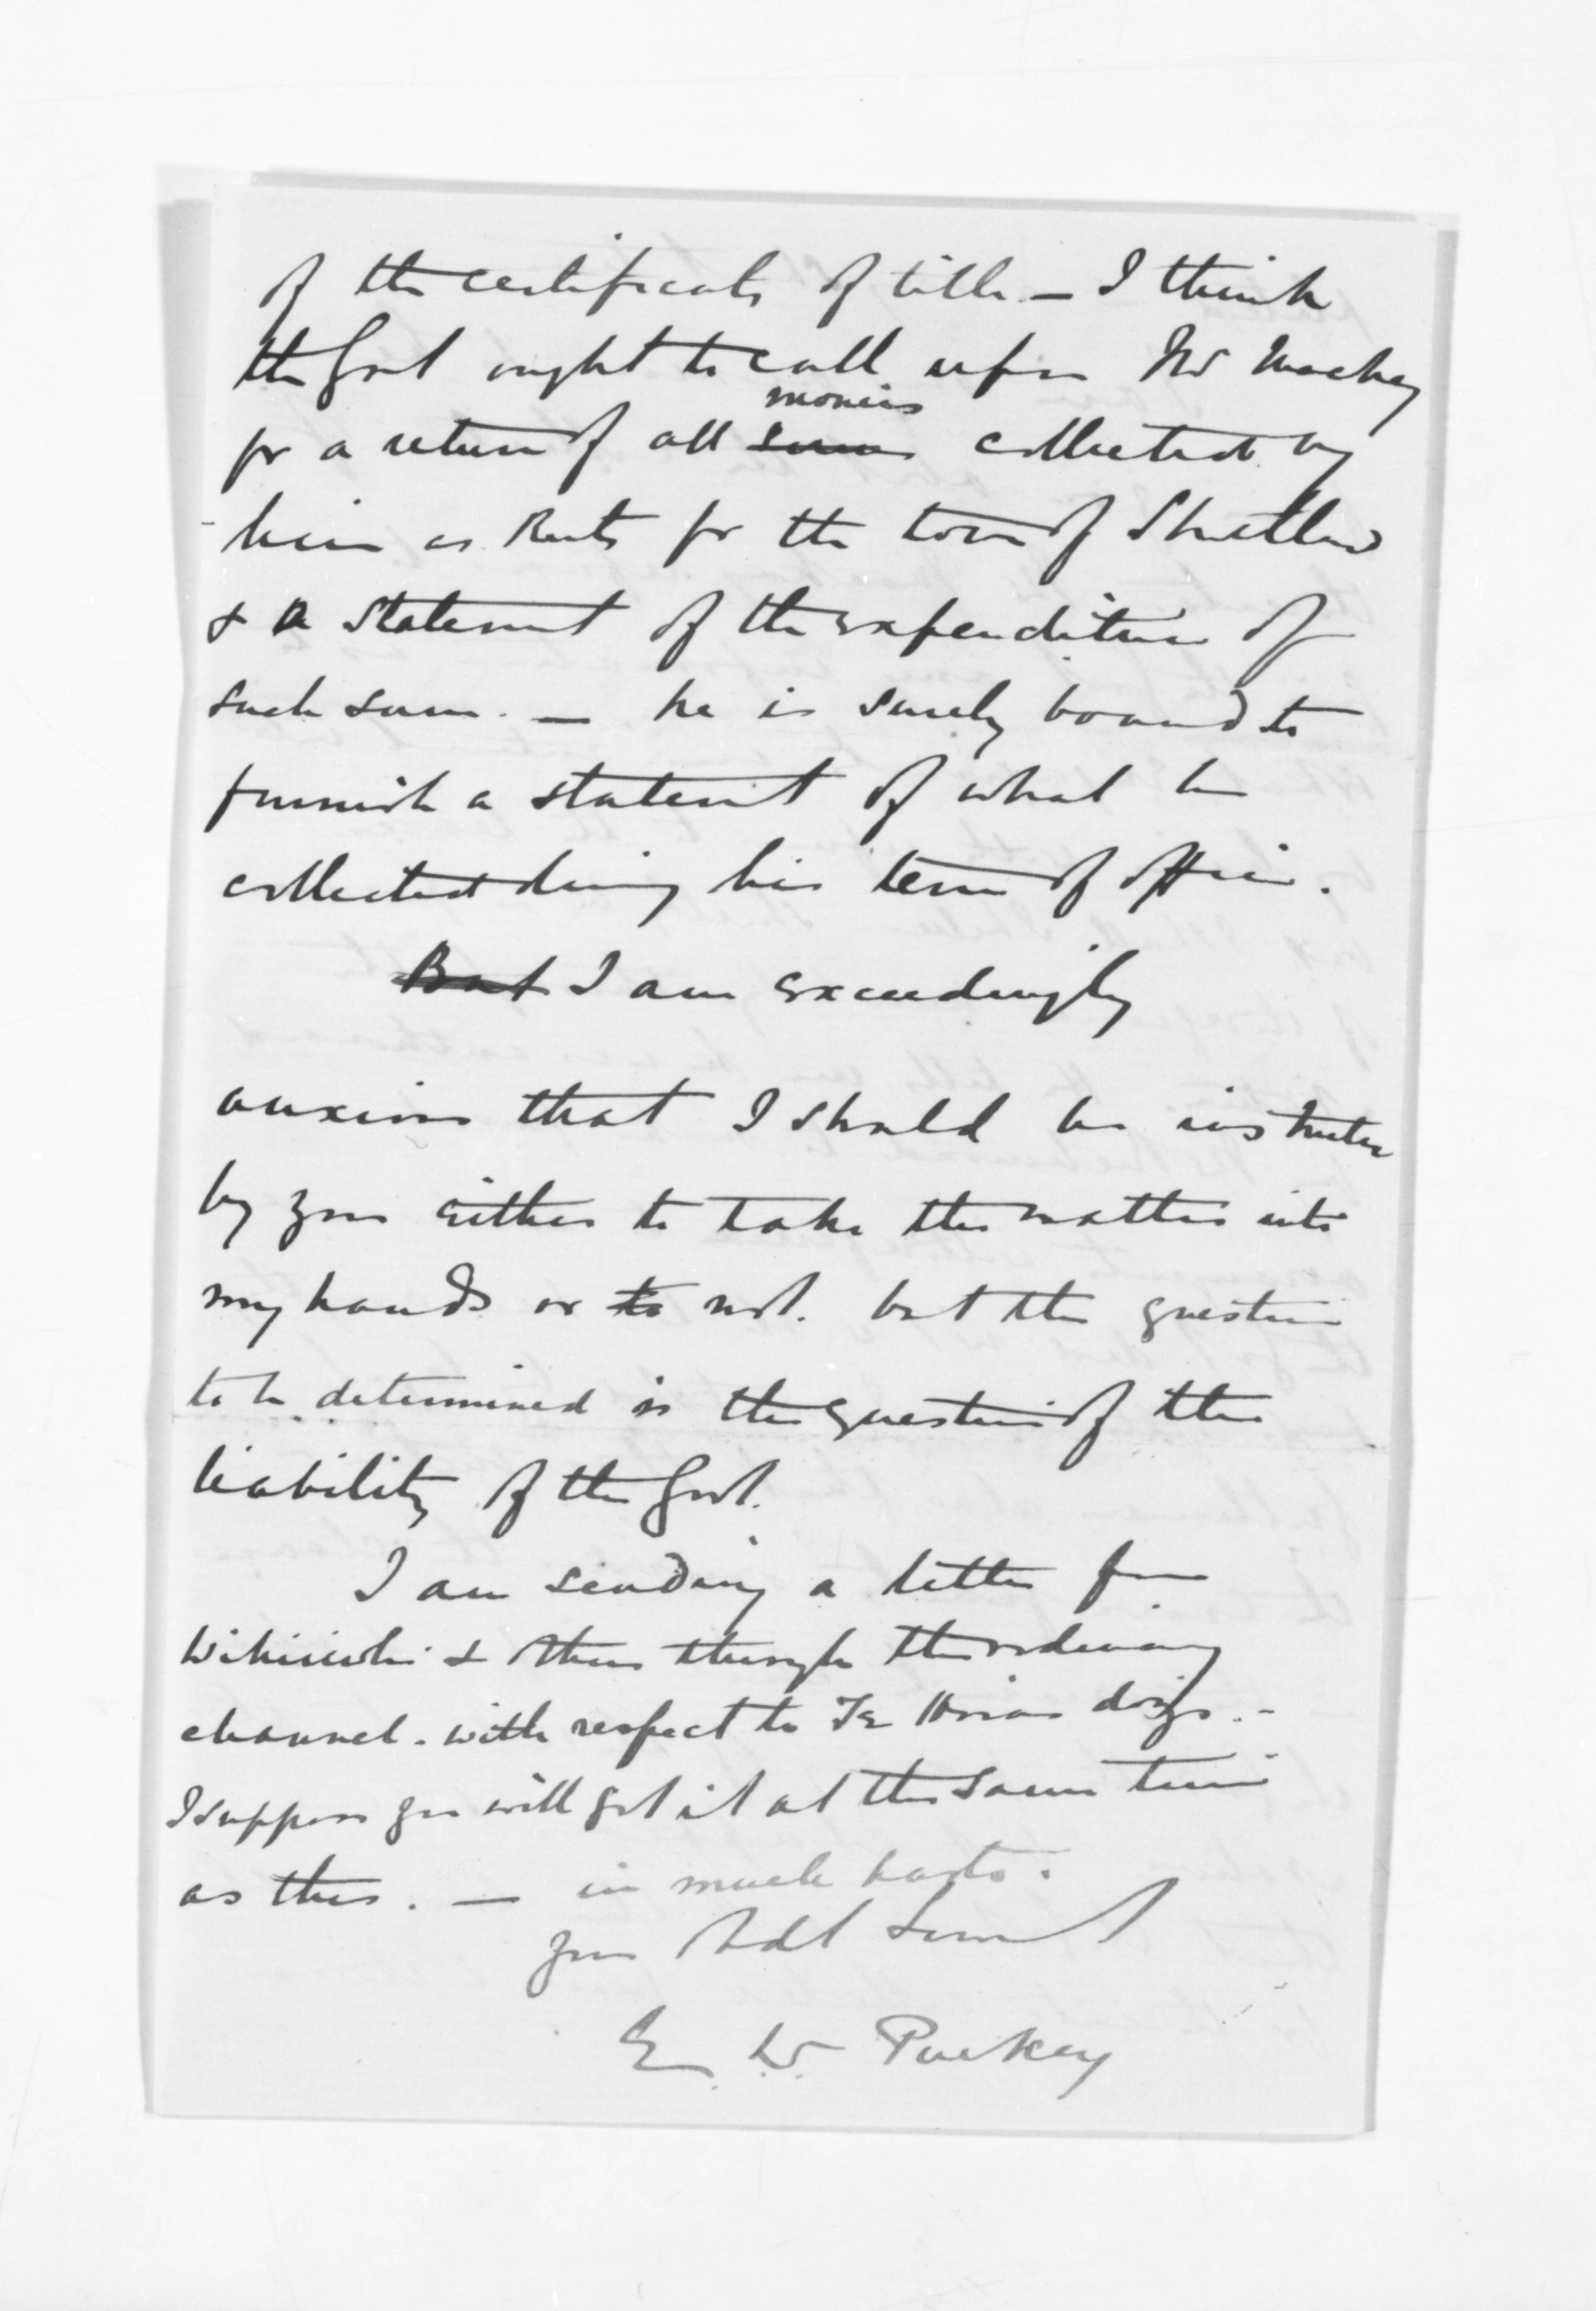 of the certificate of title — I think
the Govt ought to call upon Mr Mackay
for a return of all sums monies collected by
him as Rents for the town of Shortland
& a statement of the expenditure of
such sum. — he is surely bound to
furnish a statement of what he
collected during his term of office.
But I am exceedingly
anxious that I should be instructed
by you either to take the matter into
my hands or to not. but the question
to be determined is the question of the
liability of the Govt.
I am sending a letter from
& others through the ordinary
channel. with respect to Te Hira's doings. -
I suppose you will get it at the same time
as this. — in much haste.
your obdt Servt
E. W. Puckey